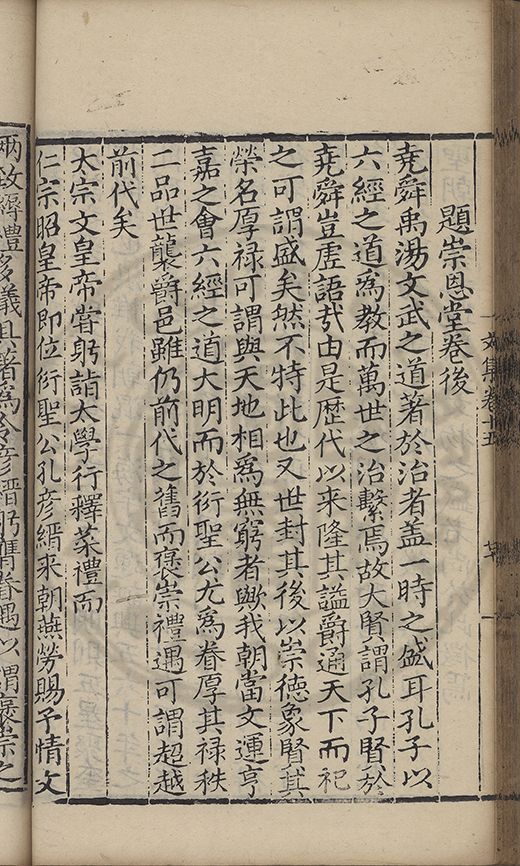 題崇恩堂卷後
堯舜禹湯文武之道著於治者盖一時之盛耳孔子以
六經之道爲教而萬世之治繫焉故大賢謂孔子賢於
堯舜豈虚語㢤由是歴代以来隆其謚爵通天下而祀
之可謂盛矣然不特此也又世封其後以崇徳象賢其
榮名厚禄可謂與天地相爲無窮者歟我朝當文運亨
嘉之會六經之道大明而於衍聖公尤爲眷厚其禄秩
二品世襲爵邑雖仍前代之舊而褒崇禮遇可謂超越
前代矣
太宗文皇帝甞躬詣太學行釋菜禮而
仁宗昭皇帝即位衍聖公孔彦縉来朝燕勞賜予情文
兩致禮多儀具著爲令彦縉躬膺眷遇以謂褒崇之
文集卷十五